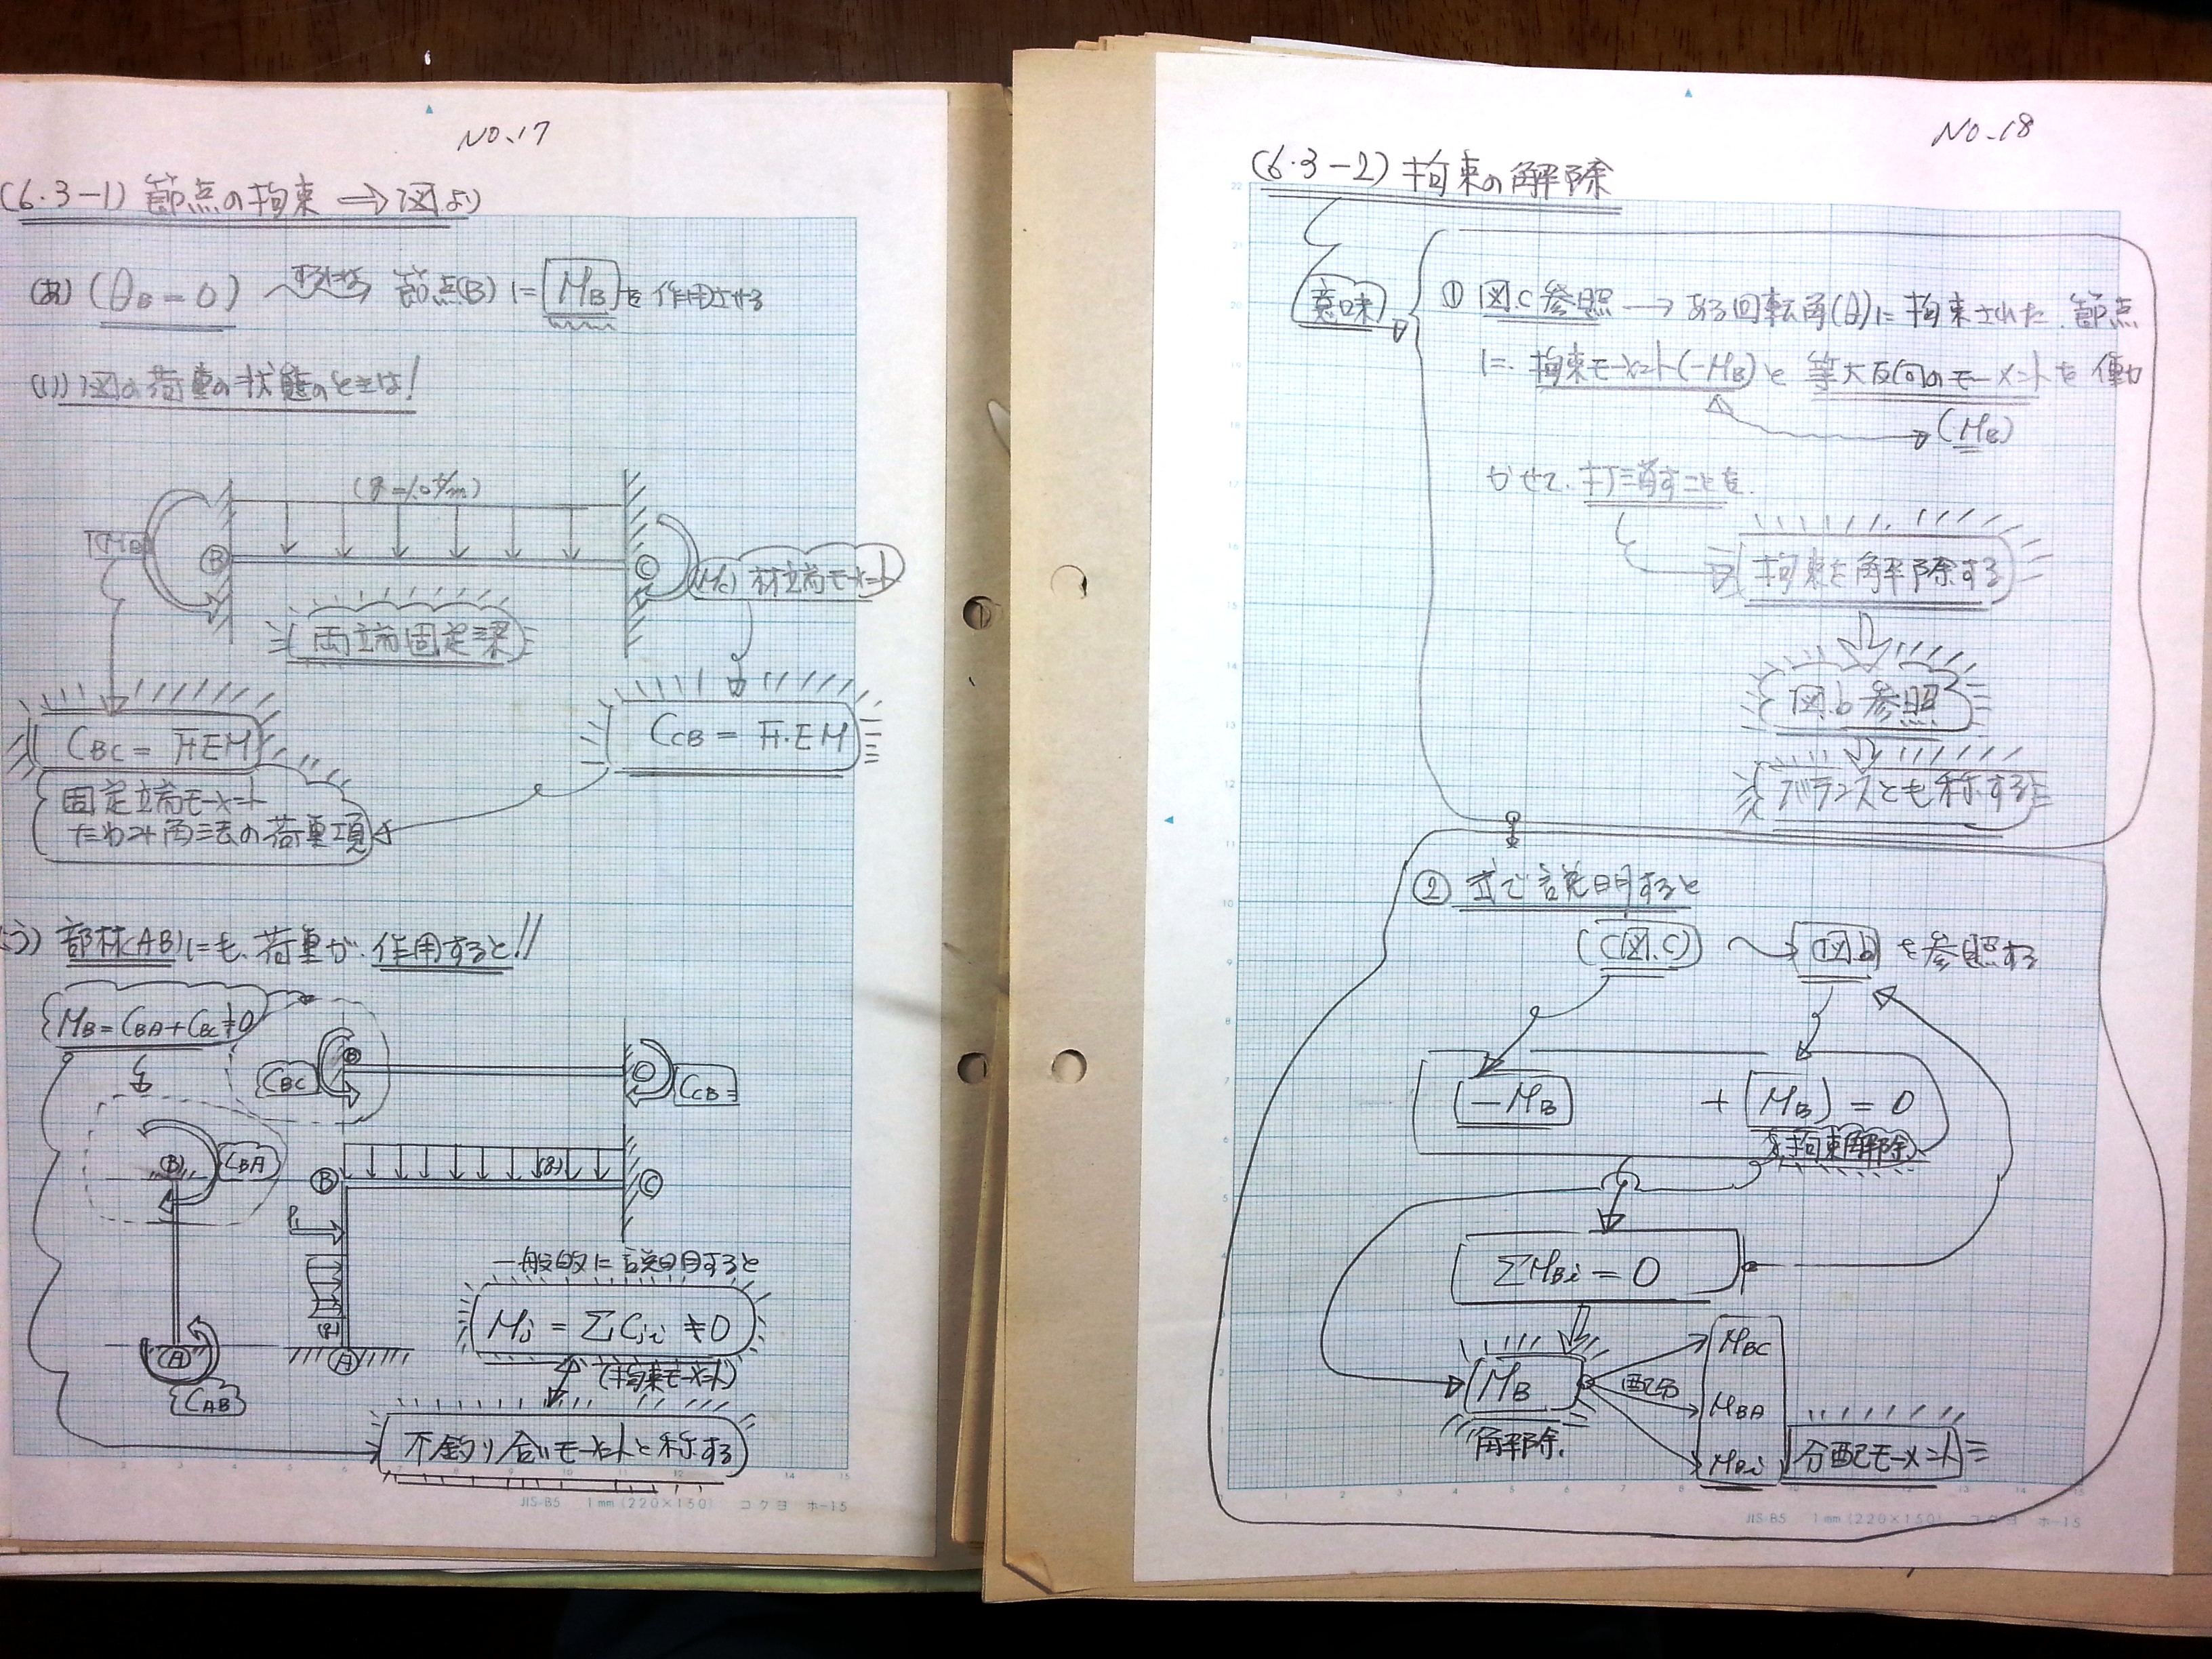 NO.17
(6・3-1) 節点の拘束 ⇒ 図より
(あ) (θB=0) 節点(B)に MB を作用させる
(い) 図の荷重の状態のときは!
(q=1.0t/m)
MB
B
C
(Mc) 材端モーメント
両端固定梁
CBC = F.E.M
CCB = F.E.M
固定端モーメント
たわみ角法の荷重項
(う) 部材(AB)にも、荷重が、作用すると!!
MB=CBA+CBC≠0
B
CBC
C
CCB
B
CBA
B
(q)
C
P
(q)
A
A
CAB
一般的に説明すると
Mj = ΣCji ≠0
(拘束モーメント)
不釣り合いモーメントと称する
JIS-B5 1mm(220×150) コクヨ ホ-15
NO.18
(6・3-2) 拘束の解除
意味
① 図.c 参照 → ある回転角(θ)に拘束された、節点
に、拘束モーメント(-MB)と 等大反向のモーメントを働
(MB)
かせて、打ち消すことを、
拘束を解除する
図.b 参照
バランスとも称する
② 式で説明すると
(図.c) 図.b を参照する
-MB + MB = 0
拘束解除
ΣMBi = 0
MB
解除、
配分
MBC
MBA
MBi
分配モーメント
JIS-B5 1mm(220×150) コクヨ ホ-15